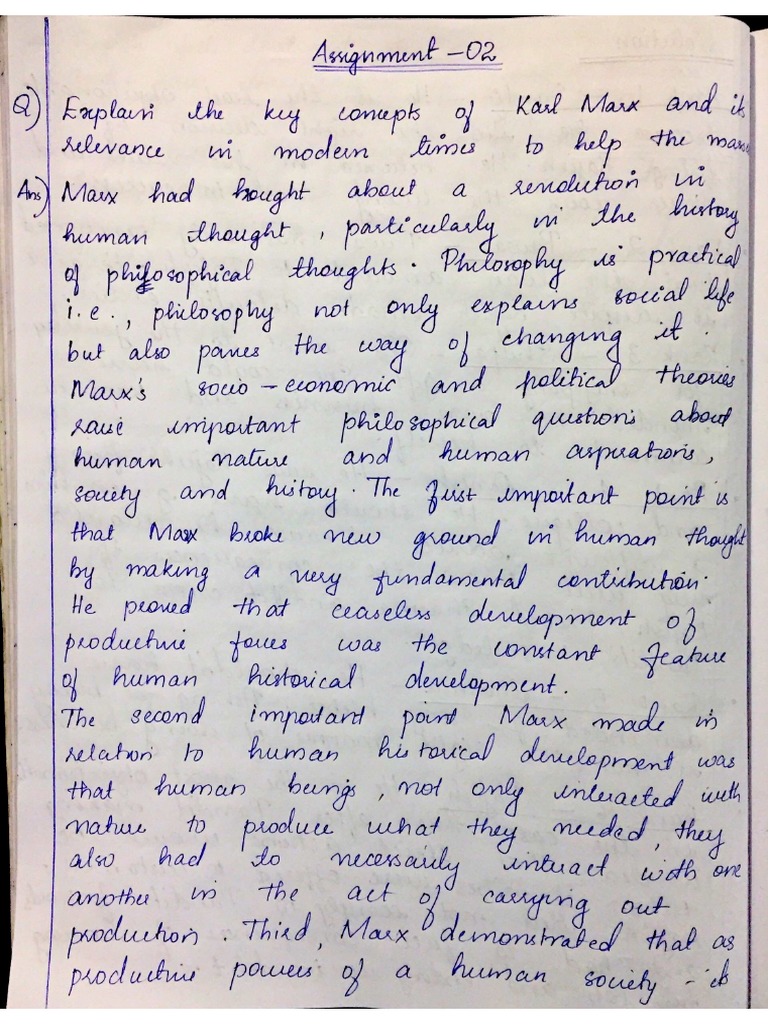 Assignment - 02
Q) Explain the key concepts of Karl Marx and its
relevance in modern times to help the mass
Ans) Marx had bought about a revolution in
human thought, particularly in the history
of philosophical thoughts. Philosophy is practical
i.e., philosophy not only explains social life
but also paves the way of changing it.
Marx's socio-economic and political theories
raise important philosophical questions about
human nature and human aspirations,
society and history. The first important point is
that Marx broke new ground in human thought
by making a very fundamental contribution.
He proved that ceaseless development of
productive forces was the constant feature
of human historical development.
The second important point Marx made in
relation to human historical development was
that human beings, not only interacted with
nature to produce what they needed, they
also had to necessarily interact with one
another in the act of carrying out
production. Third, Marx demonstrated that as
productive powers of a human society - it's